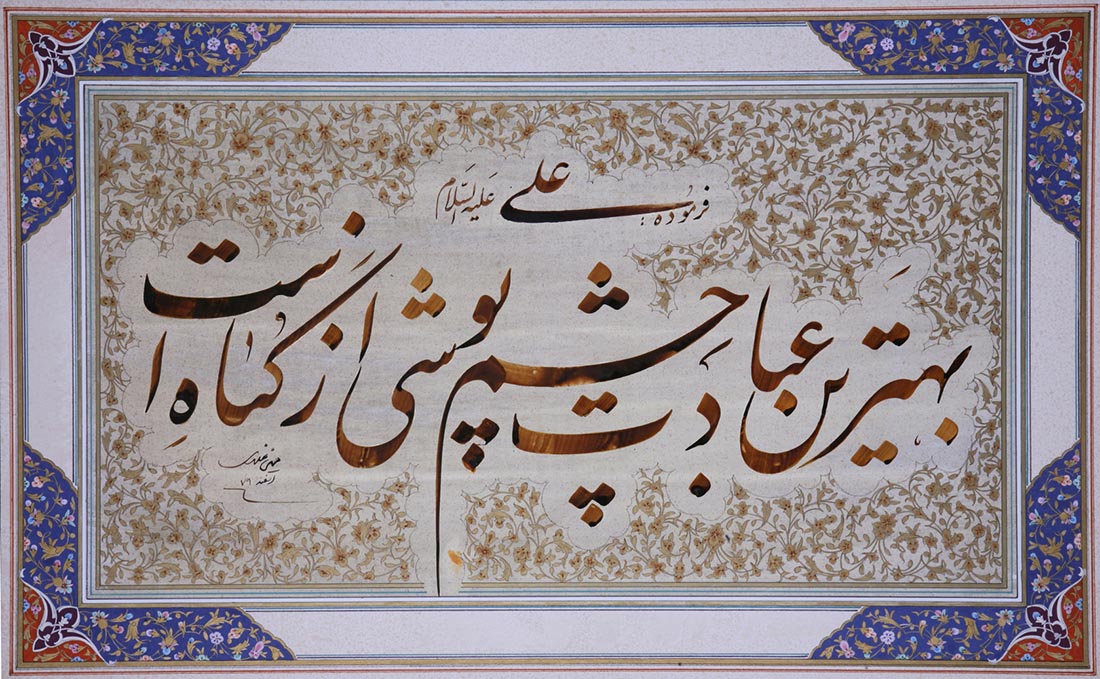 فرموده علی علیه السلام
بهترین عبادت چشم پوشی از گناه است
اسفند